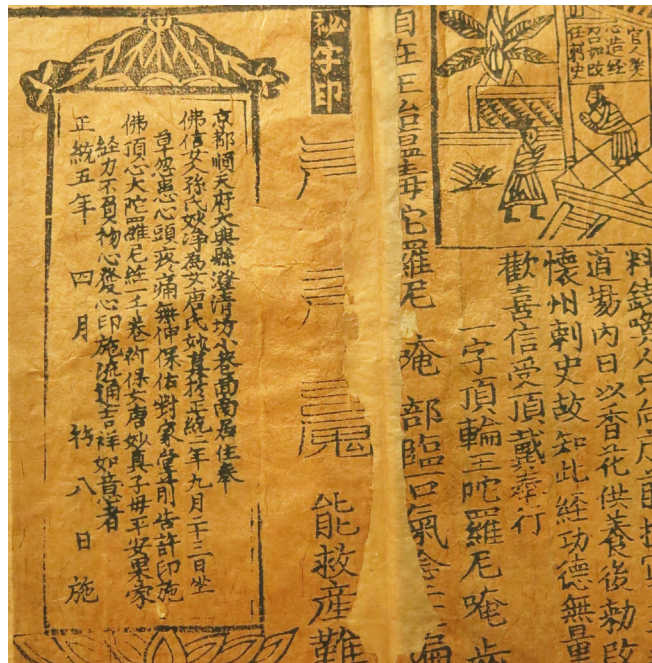 官人發
心造經
任刺史
料錢喚人只向
道場內日以香花供養後勅改
懷州刺史故知此經功德無量
歡喜信受頂戴奉行
一字頂輪王陀羅尼唵 步
自在王治温毒陀羅尼 唵 部臨
能救產難
秘字印
京都順天府大興縣澄清坊小巷面南居住奉
佛信女孫氏妙淨爲女唐氏妙真於正統二年九月二十三日坐
草忽患心頭疼痛無伸保佑對家堂前告許印施
佛頂心大陀羅尼經一千卷祈保女唐妙真子母平安果蒙
經力不負初心發心印施流通吉祥如意者
正統五年 四月 初八 日 施